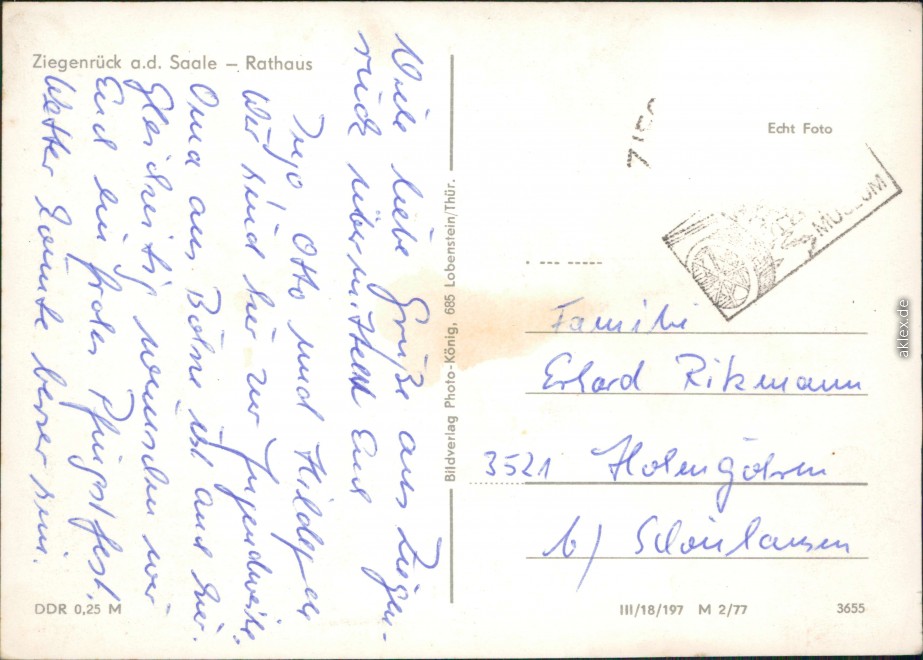 Ziegenrück a.d. Saale – Rathaus
Viele liebe Grüße aus Ziegen-
rück übermittelt Euch
Otto und Hildegard
Wir sind hier zur Jugendweihe.
Oma aus Böhne ist auch hier.
Gleichzeitig wünschen wir
Euch ein frohes Pfingstfest.
Wetter könnte besser sein.
DDR 0,25 M
Bildverlag Photo-König, 685 Lobenstein/Thür.
Echt Foto
MUSEUM
Familie
Erhard Ritzmann
3521 Hohengöhren
b/ Schönhausen
III/18/197 M 2/77
3655
aklex.de